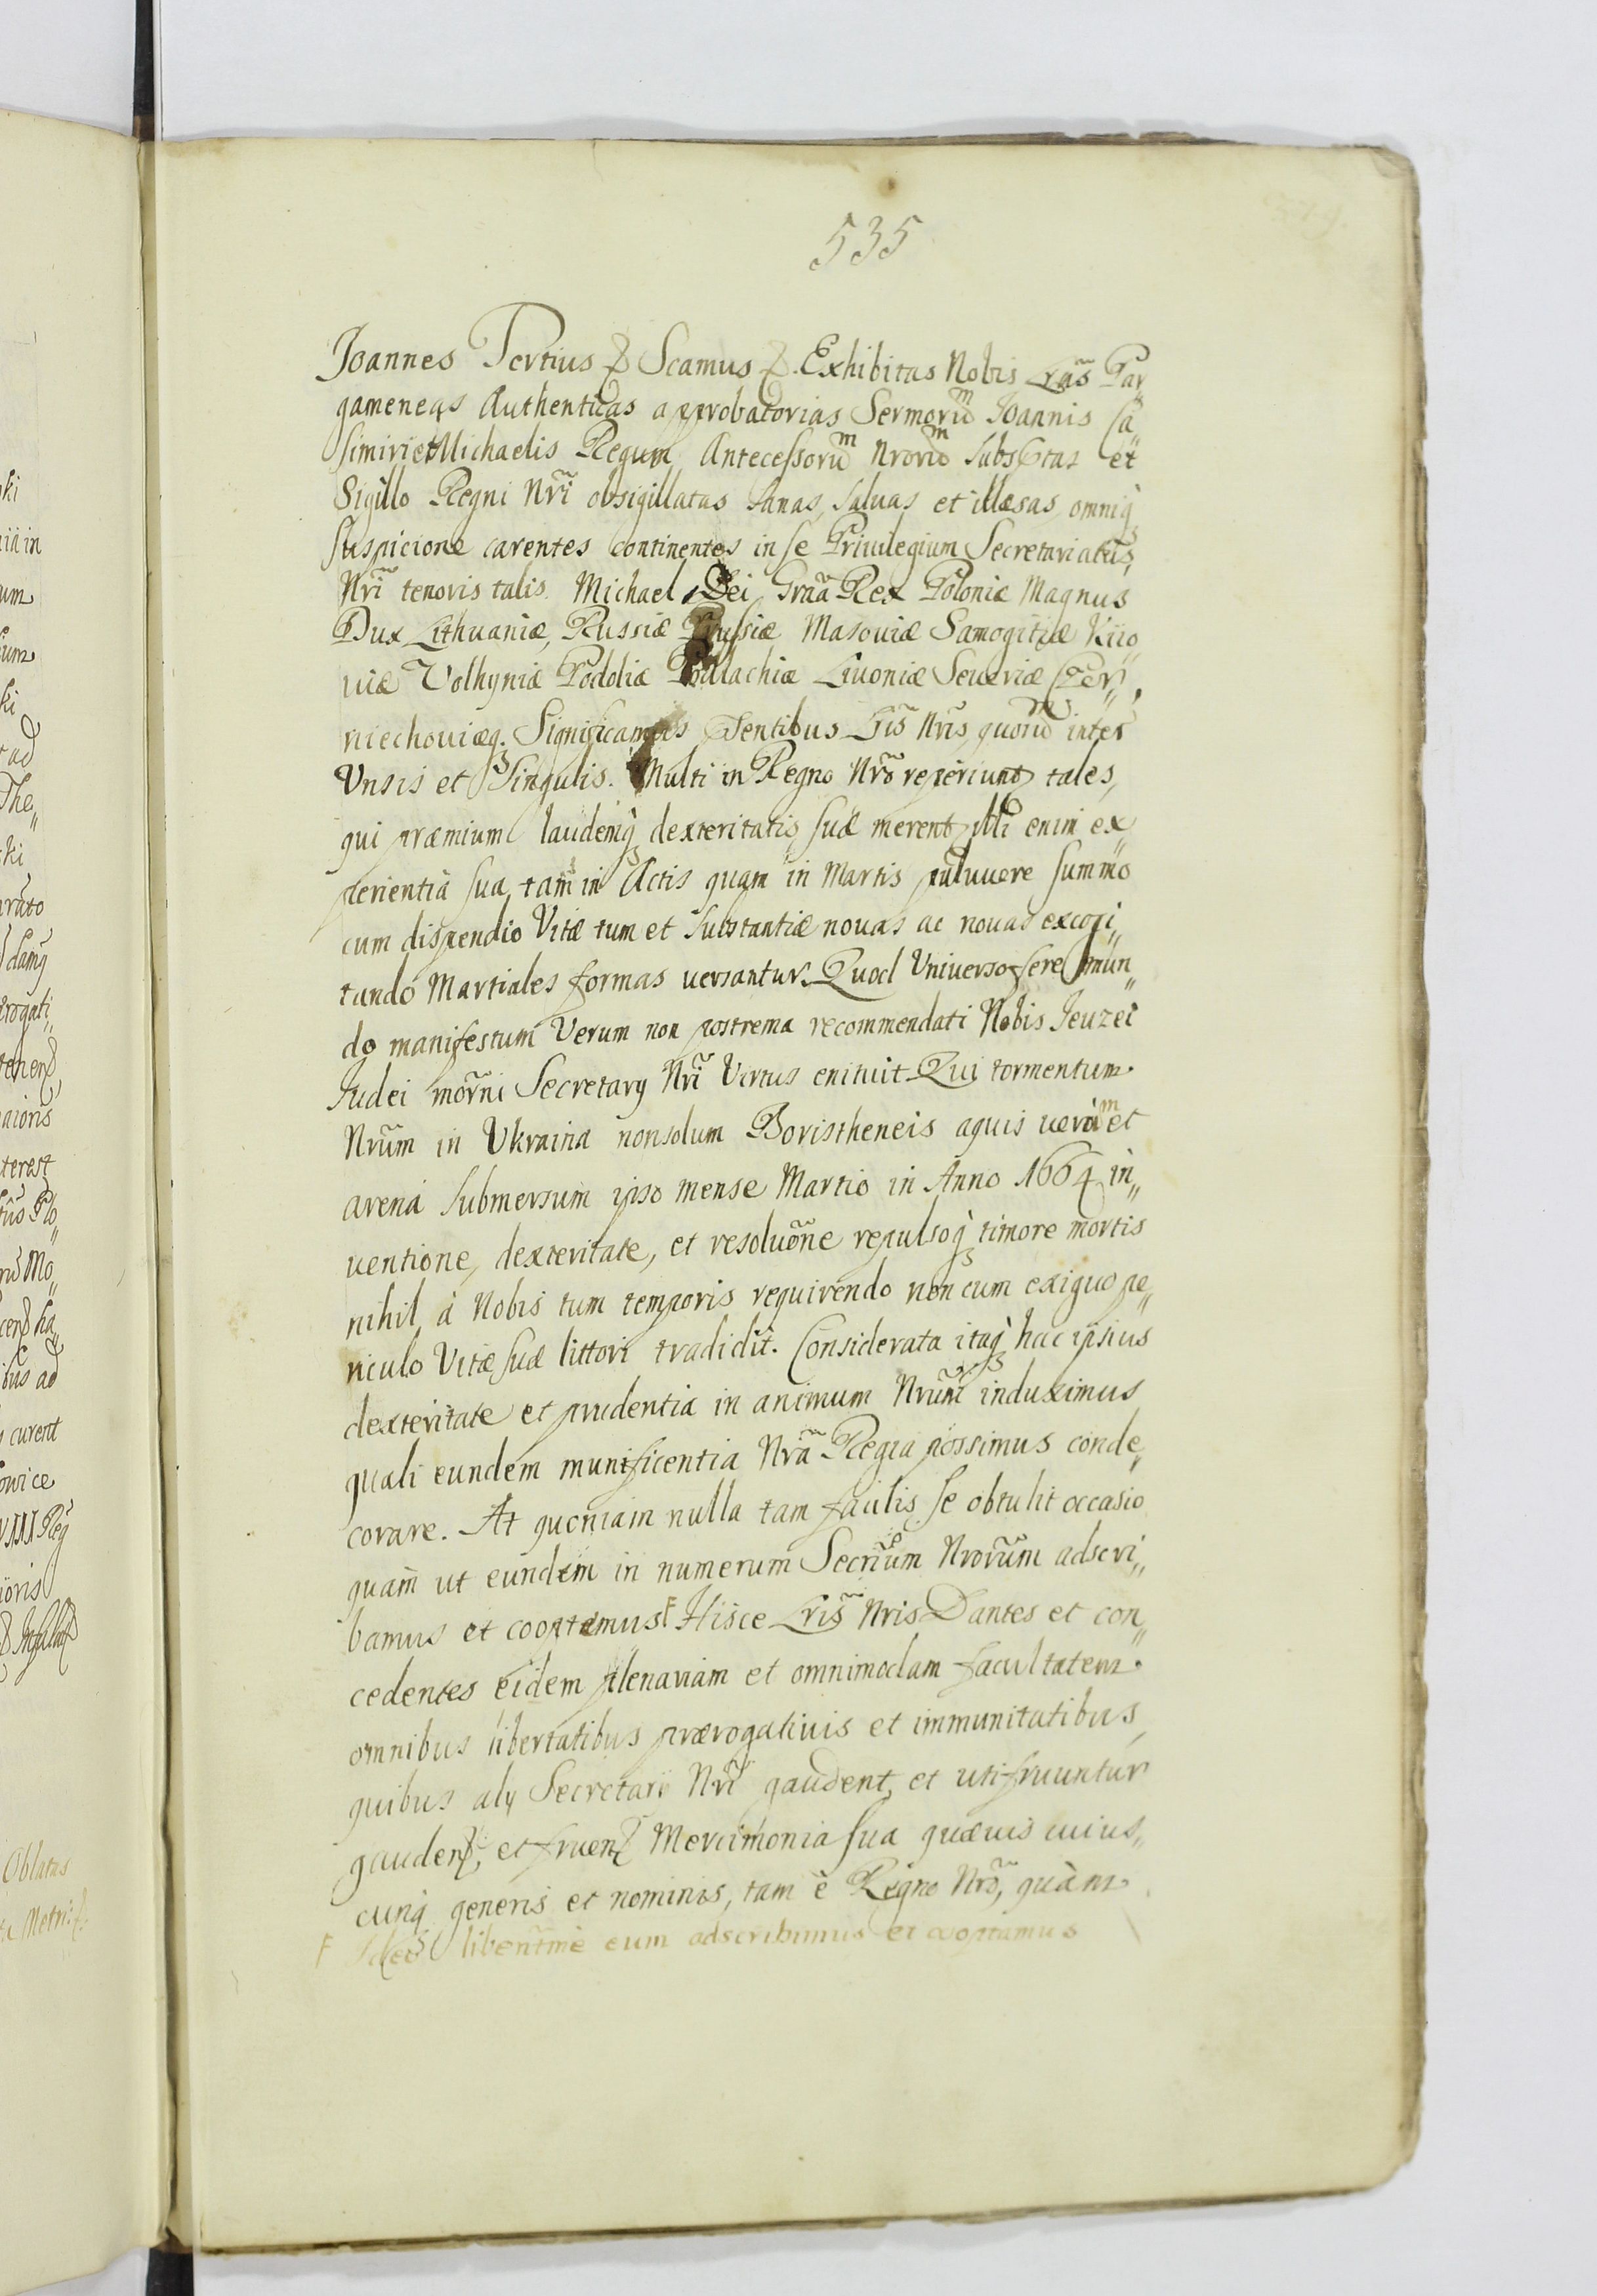 535
Joannes Tertius & Scamus &. Exhibitas Nobis Lrãs Par„
gameneas Authenticas approbatorias Sermorũm Joannis Ca„
simiri et Michaelis Regum Antecessorũm Nrorũm subscrtas et
Sigillo Regni Nrĩ obsigillatas sanas, saluas et illæsas omniq̀
suspicione carentes continentes in se Priuilegium Secretariatus,
Nrĩ tenoris talis. Michael Dei Grãa Rex Poloniæ Magnus
Dux Lithuaniæ, Russiæ Prussiæ Masouiæ Samogitiæ Kiio„
uiæ Volhyniæ Podoliæ Podlachiæ Liuoniæ Seueriæ Czer„
niechouiæq. Significamus Psentibus Lrĩs Nrĩs, quorũm inter
Vnsis et Singulis. Multi in Regno Nrõ reperiunt tales,
qui præmium laudemq̀ dexteritatis suæ merent. Illi enim ex„
perientià sua tam in Actis quam in Martis puluuere summo
cum dispendio Vitæ tum et substantiæ nouas ac nouas excogi„
tando Martiales formas uersantur. Quod Uniuerso fere mun„
do manifestum Verum non postrema recommendati Nobis Jeuzei
Judei mõrni Secretary Nrĩ Virtus enituit Qui tormentum
Nrũm in Ukraina nonsolum Boristheneis aquis uerùm et
arenà submersum ipso mense Martio in Anno 1664 in„
uentione, dexteritate, et resoluõne repulsoq̀ timore mortis
nihil à Nobis tum temporis requirendo non cum exiguo pe„
riculo Vitæ suæ littori tradidit. Considerata itaq̀ hac ipsius
dexteritate et prudentia in animum Nrũm induximus
quali eundem munificentia Nrã Regia possimus conde„
corare. At quoniam nulla tam facilis se obtulit occasio
quam ut eundem in numerum Secrĩum Nrorũm adscri„
bamus et cooptemus F Hisce Lrĩs Nris Dantes et con„
cedentes eidem plenariam et omnimodam facultatem
omnibus libertatibus prærogatiuis et immunitatibus
quibus alÿ Secretarii Nrĩ gaudent, et uti fruuntur
gauden, et fruen Mercimonia sua quæuis cuius„
cunq̀ generis et nominis, tam è Regno Nrõ, quàm
F libentĩme eum adscribimus et cooptamus